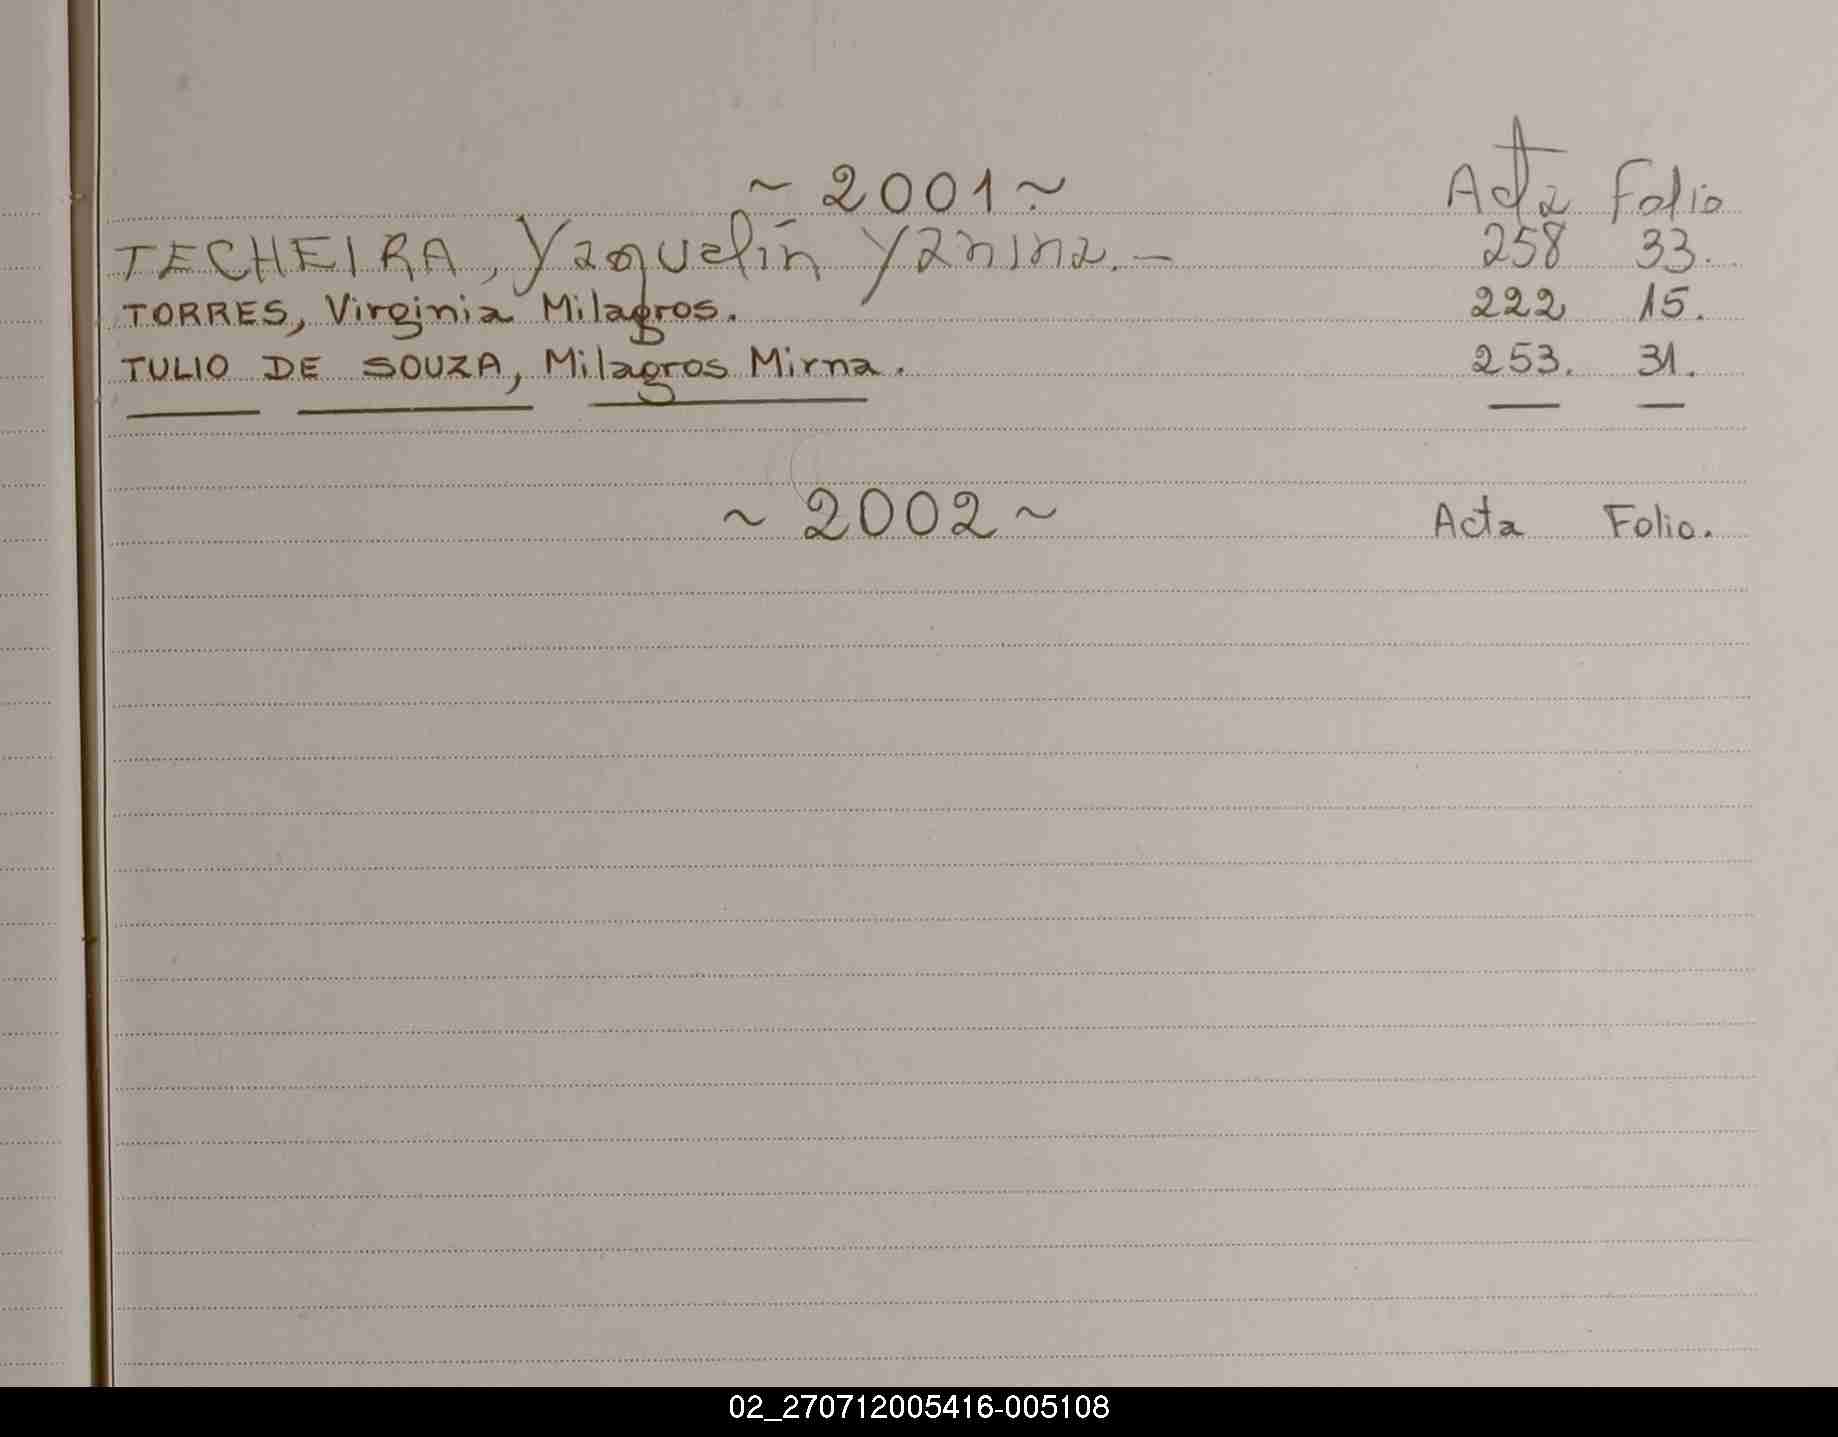 ~ 2001 ~ Acta Folio
TECHEIRA, Yaquelín Yanina. — 258 33.
TORRES, Virginia Milagros. 222 15.
TULIO DE SOUZA, Milagros Mirna. 253. 31.
~ 2002 ~ Acta Folio.
02_270712005416-005108